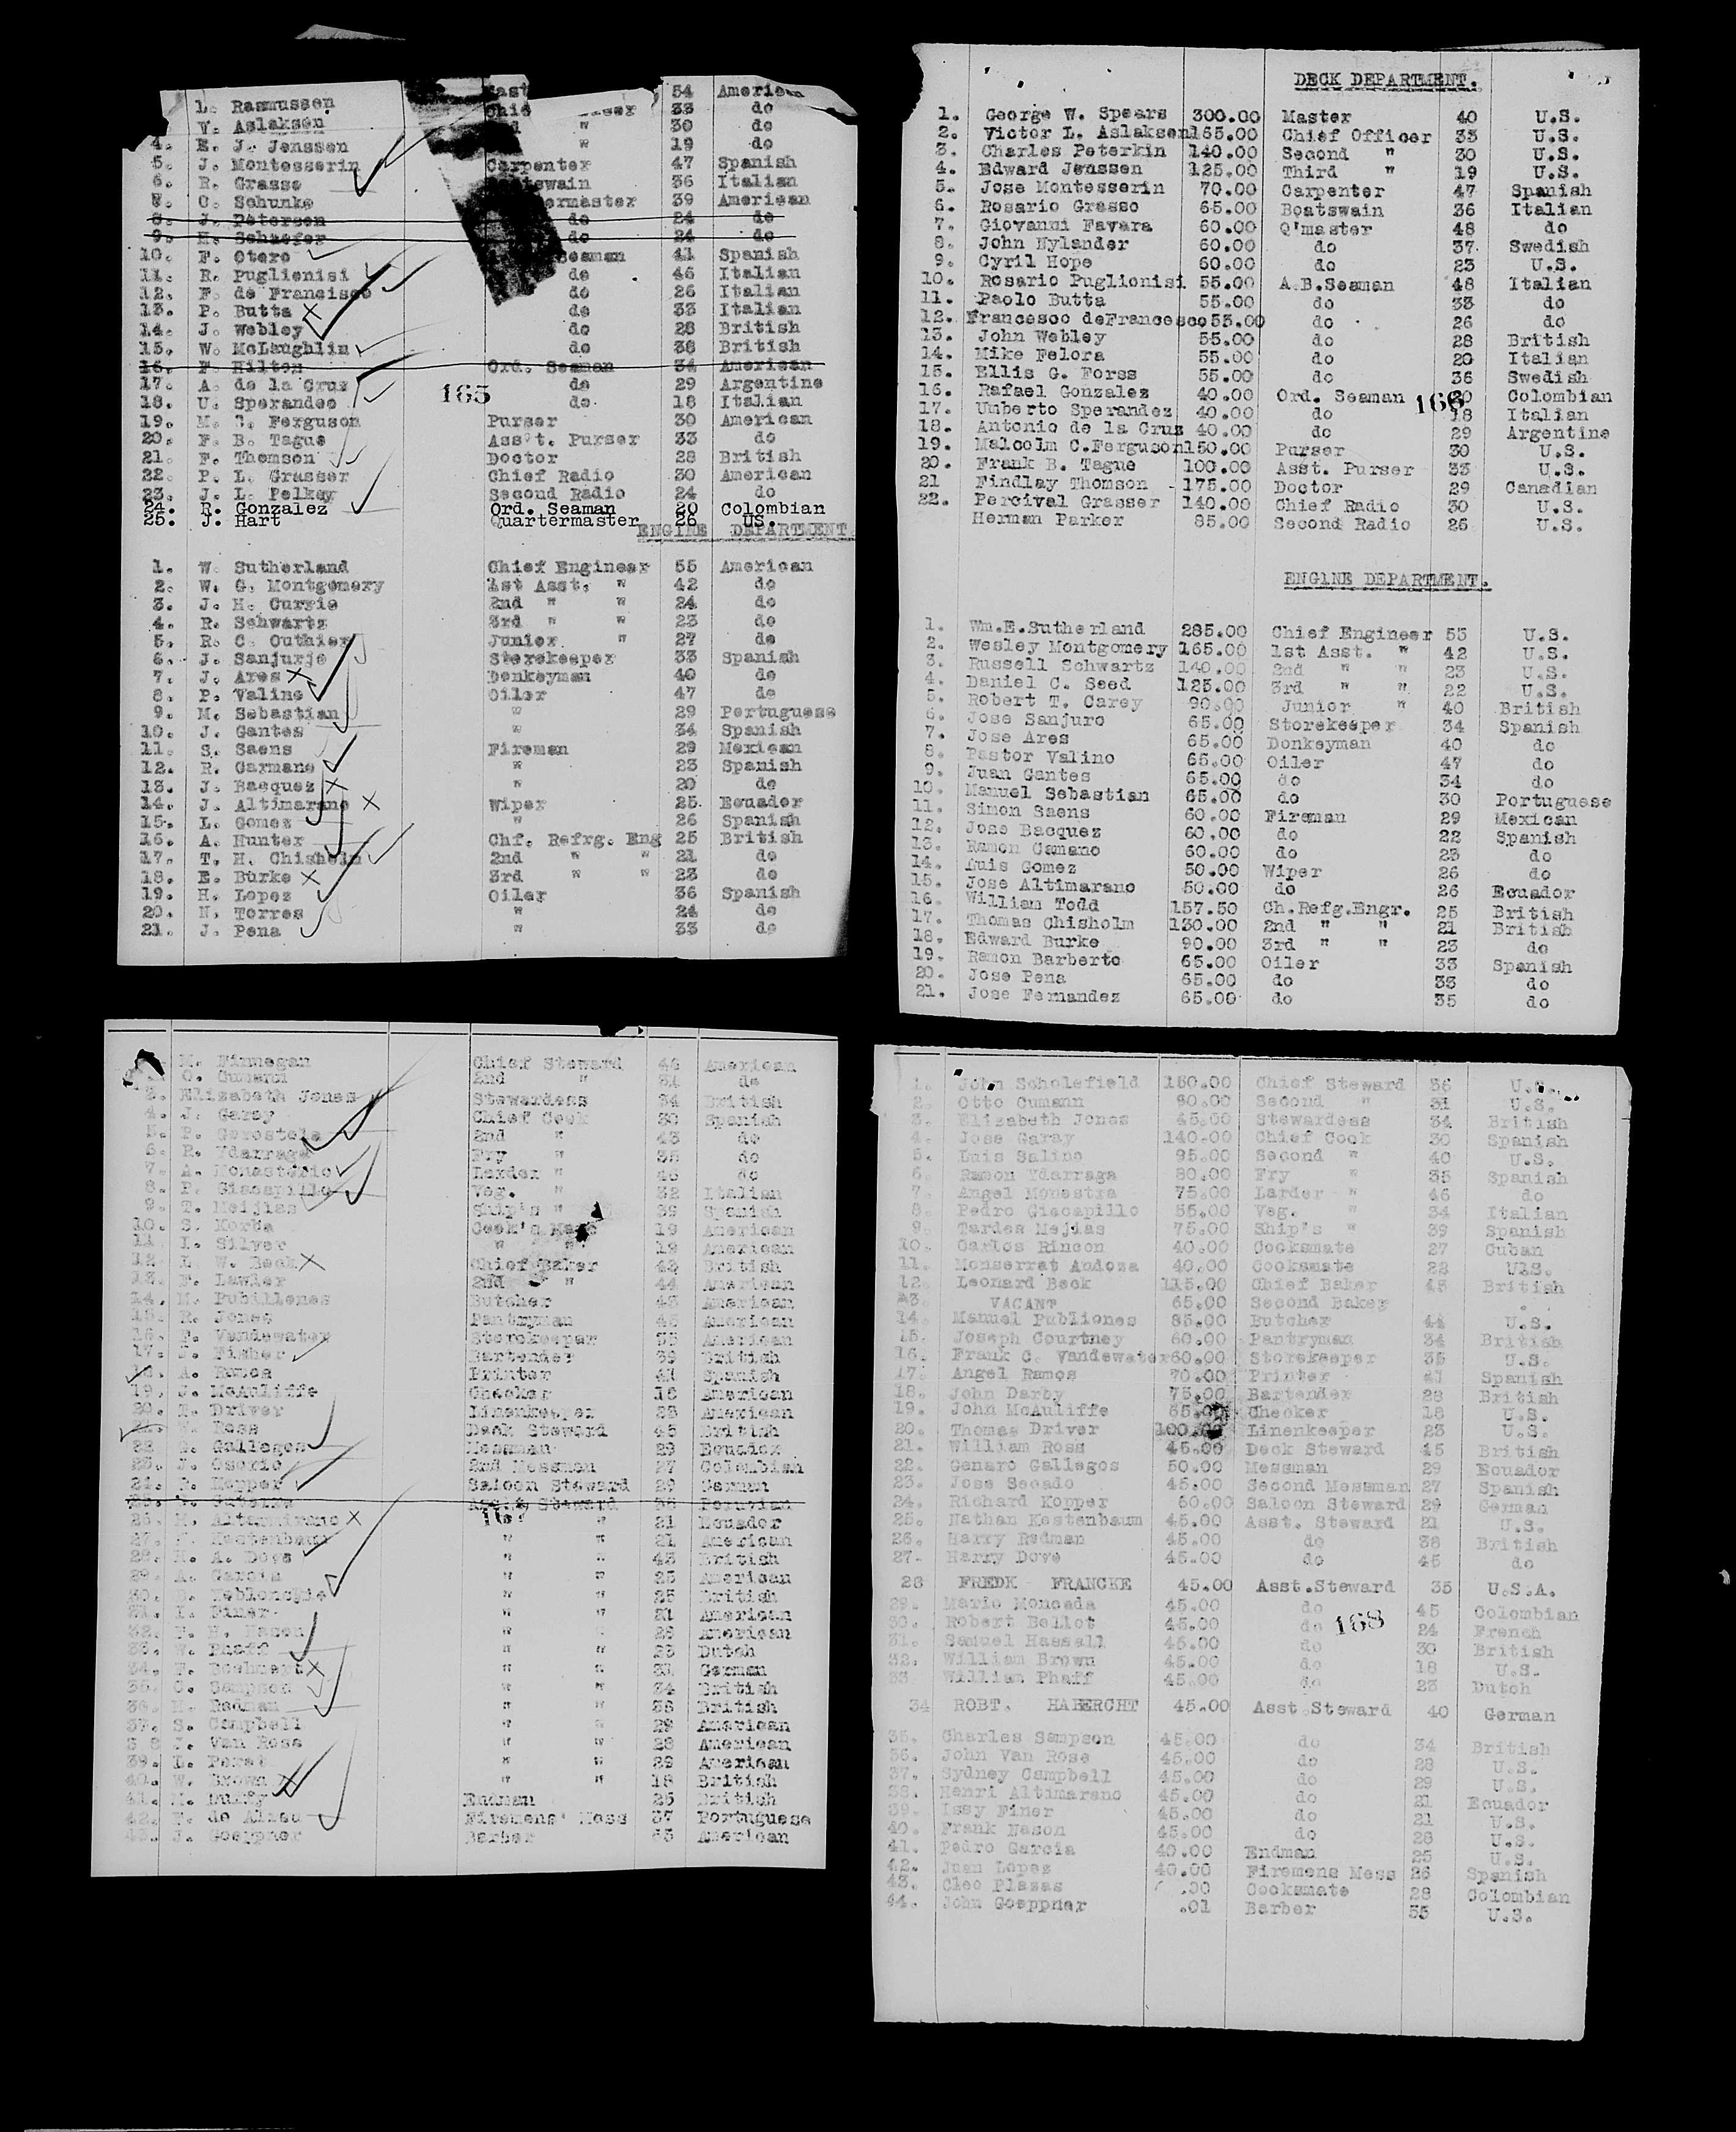 L. Rasmussen 54 American
V. Aslaksen 33 do
30 do
4. E. J. Jenssen " 19 do
5. J. Montesserin Carpenter 47 Spanish
6. R. Grasso 36 Italian
7. C. Schunke 39 American
8. J. Petersen do 24 do
9. H. Schaefer do 24 do
10. F. Otero Seaman 41 Spanish
11. R. Puglienisi do 46 Italian
12. F. de Francisco do 26 Italian
13. P. Butta do 33 Italian
14. J. Webley do 28 British
15. W. McLaughlin do 38 British
16. F. Hilton Ord. Seaman 34 American
17. A. de la Cruz do 29 Argentine
165
18. U. Sperandeo do 18 Italian
19. M. C. Ferguson Purser 30 American
20. F. B. Tague Ass't. Purser 33 do
21. F. Thomson Doctor 28 British
22. P. L. Grasser Chief Radio 30 American
23. J. L. Pelkey Second Radio 24 do
24. R. Gonzalez Ord. Seaman 20 Colombian
25. J. Hart Quartermaster 26 US.
ENGINE DEPARTMENT
1. W. Sutherland Chief Engineer 55 American
2. W. G. Montgomery 1st Asst. " 42 do
3. J. H. Currie 2nd " " 24 do
4. R. Schwartz 3rd " " 23 do
5. R. C. Outhier Junior " 27 do
6. J. Sanjurjo Storekeeper 33 Spanish
7. J. Ares Donkeyman 40 do
8. P. Valino Oiler 47 do
9. M. Sebastian " 29 Portuguese
10. J. Gantes " 34 Spanish
11. S. Saens Fireman 29 Mexican
12. R. Carmano " 23 Spanish
13. J. Bacquez " 20 do
14. J. Altimarano Wiper 25 Ecuador
15. L. Gomez " 26 Spanish
16. A. Hunter Chf. Refrg. Eng 25 British
17. T. H. Chisholm 2nd " " 21 do
18. E. Burke 3rd " " 23 do
19. H. Lopez Oiler 36 Spanish
20. N. Torres " 24 do
21. J. Pena " 33 do
DECK DEPARTMENT.
1. George W. Spears 300.00 Master 40 U.S.
2. Victor L. Aslaksen 165.00 Chief Officer 33 U.S.
3. Charles Peterkin 140.00 Second " 30 U.S.
4. Edward Jenssen 125.00 Third " 19 U.S.
5. Jose Montesserin 70.00 Carpenter 47 Spanish
6. Rosario Grasso 65.00 Boatswain 36 Italian
7. Giovanni Favara 60.00 Q'master 48 do
8. John Nylander 60.00 do 37 Swedish
9. Cyril Hope 60.00 do 23 U.S.
10. Rosario Puglionisi 55.00 A.B.Seaman 48 Italian
11. Paolo Butta 55.00 do 33 do
12. Francesco deFrancesco 55.00 do 26 do
13. John Webley 55.00 do 28 British
14. Mike Felora 55.00 do 20 Italian
15. Ellis G. Forss 55.00 do 36 Swedish
16. Rafael Gonzalez 40.00 Ord. Seaman 20 Colombian
166
17. Umberto Sperandez 40.00 do 18 Italian
18. Antonio de la Cruz 40.00 do 29 Argentine
19. Malcolm C.Ferguson 150.00 Purser 30 U.S.
20. Frank B. Tague 100.00 Asst. Purser 33 U.S.
21 Findlay Thomson 175.00 Doctor 29 Canadian
22. Percival Grasser 140.00 Chief Radio 30 U.S.
Herman Parker 85.00 Second Radio 26 U.S.
ENGINE DEPARTMENT.
1. Wm.E.Sutherland 285.00 Chief Engineer 55 U.S.
2. Wesley Montgomery 165.00 1st Asst. " 42 U.S.
3. Russell Schwartz 140.00 2nd " " 23 U.S.
4. Daniel C. Seed 125.00 3rd " " 22 U.S.
5. Robert T. Carey 90.00 Junior " 40 British
6. Jose Sanjuro 65.00 Storekeeper 34 Spanish
7. Jose Ares 65.00 Donkeyman 40 do
8. Pastor Valino 65.00 Oiler 47 do
9. Juan Gantes 65.00 do 34 do
10. Manuel Sebastian 65.00 do 30 Portuguese
11. Simon Saens 60.00 Fireman 29 Mexican
12. Jose Bacquez 60.00 do 22 Spanish
13. Ramon Camano 60.00 do 23 do
14. Luis Gomez 50.00 Wiper 26 do
15. Jose Altimarano 50.00 do 26 Ecuador
16. William Todd 157.50 Ch.Refg.Engr. 25 British
17. Thomas Chisholm 130.00 2nd " " 21 British
18. Edward Burke 90.00 3rd " " 23 do
19. Ramon Barberto 65.00 Oiler 33 Spanish
20. Jose Pena 65.00 do 33 do
21. Jose Fernandez 65.00 do 35 do
M. Finnegan Chief Steward 46 American
O. Cumann 2nd " 31 do
3. Elizabeth Jones Stewardess 34 British
4. J. Garay Chief Cook 30 Spanish
5. P. Gorostola 2nd " 43 do
6. R. Ydarraga Fry " 35 do
7. A. Monasterio Larder " 46 do
8. P. Giacapillo Veg. " 32 Italian
9. T. Meijias Ship's " 39 Spanish
10. S. Morda Cook's Mate 19 American
11 I. Silver " " 19 American
12 L. W. Beck Chief Baker 43 British
13. F. Lawler 2nd " 44 American
14. M. Pubillones Butcher 43 American
15. R. Jones Pantryman 46 American
16. F. Vandewater Storekeeper 35 American
17. J. Fisher Bartender 39 British
18. A. Ramos Printer 41 Spanish
19. J. McAuliffe Checker 18 American
20. T. Driver Linenkeeper 23 American
21. W. Ross Deck Steward 45 British
22 G. Gallegos Messman 29 Ecuador
23. J. Osorio 2nd Messman 27 Colombian
24. R. Kopper Saloon Steward 29 German
25. Ass't Steward 38 Peruvian
167
26. H. Altamirano " 21 Ecuador
27. N. Kestenbaum " " 21 American
28. H. A. Dove " " 45 British
29. A. Garcia " " 25 American
30. " " 25 British
31. I. Finer " " 21 American
32. F. H. Nason " " 28 American
33. W. Phaff " " 23 Dutch
34. F. " " 31 German
35. C. Sampson " " 34 British
36. H. Redman " " 38 British
37. S. Campbell " " 29 American
38 J. Van Rose " " 28 American
39. L. Perat " " 29 American
40. W. Brown " " 18 British
41. M. Endman 25 British
42. F. de Almeo Firemens' Mess 37 Portuguese
43. J. Goeppner Barber 65 American
1. John Scholefield 150.00 Chief Steward 36 U.S.
2. Otto Cumann 80.00 Second " 31 U.S.
3. Elizabeth Jones 45.00 Stewardess 34 British
4. Jose Garay 140.00 Chief Cook 30 Spanish
5. Luis Salino 95.00 Second " 40 U.S.
6. Ramon Ydarraga 80.00 Fry " 35 Spanish
7. Angel Monestra 75.00 Larder " 46 do
8. Pedro Giacapillo 55.00 Veg. " 34 Italian
9. Tardes Mejias 75.00 Ship's " 39 Spanish
10. Carlos Rincon 40.00 Cooksmate 27 Cuban
11. Monserrat Andoza 40.00 Cooksmate 28 U.S.
12. Leonard Beck 115.00 Chief Baker 43 British
13. VACANT 65.00 Second Baker
14. Manuel Publiones 85.00 Butcher 44 U.S.
15. Joseph Courtney 60.00 Pantryman 34 British
16. Frank C. Vandewater 60.00 Storekeeper 35 U.S.
17. Angel Ramos 70.00 Printer 41 Spanish
18. John Darby 75.00 Bartender 28 British
19. John McAuliffe 65.00 Checker 18 U.S.
20. Thomas Driver 100.00 Linenkeeper 23 U.S.
21. William Ross 45.00 Deck Steward 45 British
22. Genaro Gallegos 50.00 Messman 29 Ecuador
23. Jose Secado 45.00 Second Messman 27 Spanish
24. Richard Kopper 60.00 Saloon Steward 29 German
25. Nathan Kestenbaum 45.00 Asst. Steward 21 U.S.
26. Harry Redman 45.00 do 38 British
27. Harry Dove 45.00 do 45 do
28 FREDK FRANCKE 45.00 Asst.Steward 35 U.S.A.
29. Mario Moncada 45.00 do 45 Colombian
30. Robert Bellot 45.00 do 24 French
168
31. Samuel Hassell 45.00 do 30 British
32. William Brown 45.00 do 18 U.S.
33 William Phaff 45.00 do 23 Dutch
34 ROBT. HABERCHT 45.00 Asst.Steward 40 German
35. Charles Sampson 45.00 do 34 British
36. John Van Rose 45.00 do 28 U.S.
37. Sydney Campbell 45.00 do 29 U.S.
38. Henri Altimarano 45.00 do 21 Ecuador
39. Issy Finer 45.00 do 21 U.S.
40. Frank Nason 45.00 do 28 U.S.
41. Pedro Garcia 40.00 Endman 25 U.S.
42. Juan Lopez 40.00 Firemens Mess 26 Spanish
43. Cleo Plazas .00 Cooksmate 28 Colombian
44. John Goeppner .01 Barber 35 U.S.